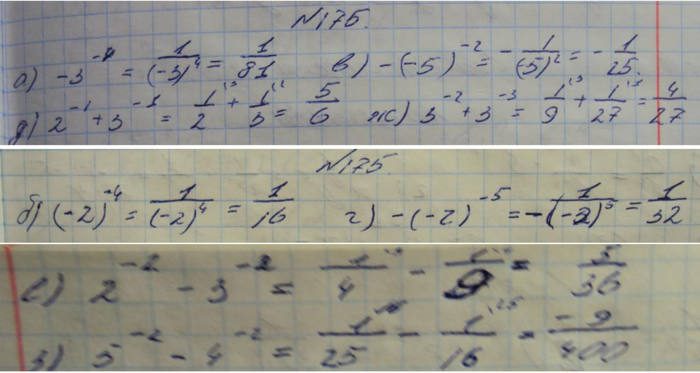 №175.
а) -3^-4 = 1/(-3)^4 = 1/81 в) -(-5)^-2 = -1/(5)^2 = -1/25.
д) 2^-1 + 3^-1 = 1/2 + 1/3 = 5/6 ж) 3^-2 + 3^-3 = 1/9 + 1/27 = 4/27
№175.
б) (-2)^-4 = 1/(-2)^4 = 1/16 г) -(-2)^-5 = -1/(-2)^5 = 1/32
е) 2^-2 - 3^-2 = 1/4 - 1/9 = 5/36
з) 5^-2 - 4^-2 = 1/25 - 1/16 = -9/400